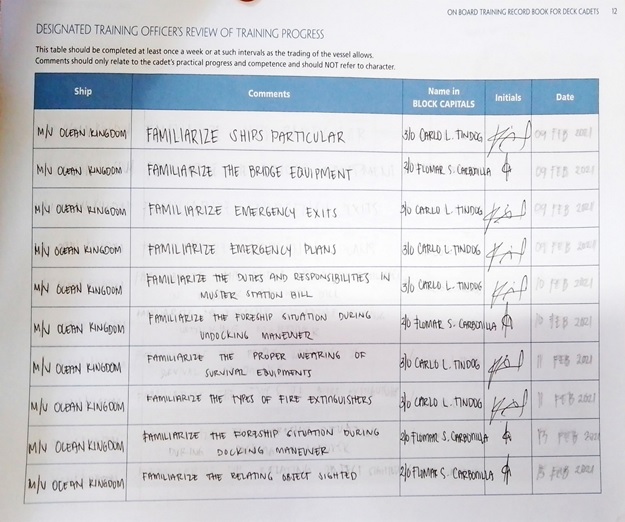 ON BOARD TRAINING RECORD BOOK FOR DECK CADETS 12
DESIGNATED TRAINING OFFICER'S REVIEW OF TRAINING PROGRESS
This table should be completed at least once a week or at such intervals as the trading of the vessel allows.
Comments should only relate to the cadet's practical progress and competence and should NOT refer to character.
Ship Comments Name in BLOCK CAPITALS Initials Date
M/V OCEAN KINGDOM FAMILIARIZE SHIPS PARTICULAR 3/O CARLO L. TINDOG 09 FEB 2021
M/V OCEAN KINGDOM FAMILIARIZE THE BRIDGE EQUIPMENT 2/O FLOMAR S. CARBONILLA 09 FEB 2021
M/V OCEAN KINGDOM FAMILIARIZE EMERGENCY EXITS 3/O CARLO L. TINDOG 09 FEB 2021
M/V OCEAN KINGDOM FAMILIARIZE EMERGENCY PLANS 3/O CARLO L. TINDOG 09 FEB 2021
M/V OCEAN KINGDOM FAMILIARIZE THE DUTIES AND RESPONSIBILITIES IN
MUSTER STATION BILL 3/O CARLO L. TINDOG 10 FEB 2021
M/V OCEAN KINGDOM FAMILIARIZE THE FORESHIP SITUATION DURING
UNDOCKING MANEUVER 2/O FLOMAR S. CARBONILLA 10 FEB 2021
M/V OCEAN KINGDOM FAMILIARIZE THE PROPER WEARING OF
SURVIVAL EQUIPMENTS 3/O CARLO L. TINDOG 11 FEB 2021
M/V OCEAN KINGDOM FAMILIARIZE THE TYPES OF FIRE EXTINGUISHERS 3/O CARLO L. TINDOG 11 FEB 2021
M/V OCEAN KINGDOM FAMILIARIZE THE FORESHIP SITUATION DURING
DOCKING MANEUVER 2/O FLOMAR S. CARBONILLA FEB 2021
M/V OCEAN KINGDOM FAMILIARIZE THE RELATING OBJECT SIGHTED 2/O FLOMAR S. CARBONILLA FEB 2021